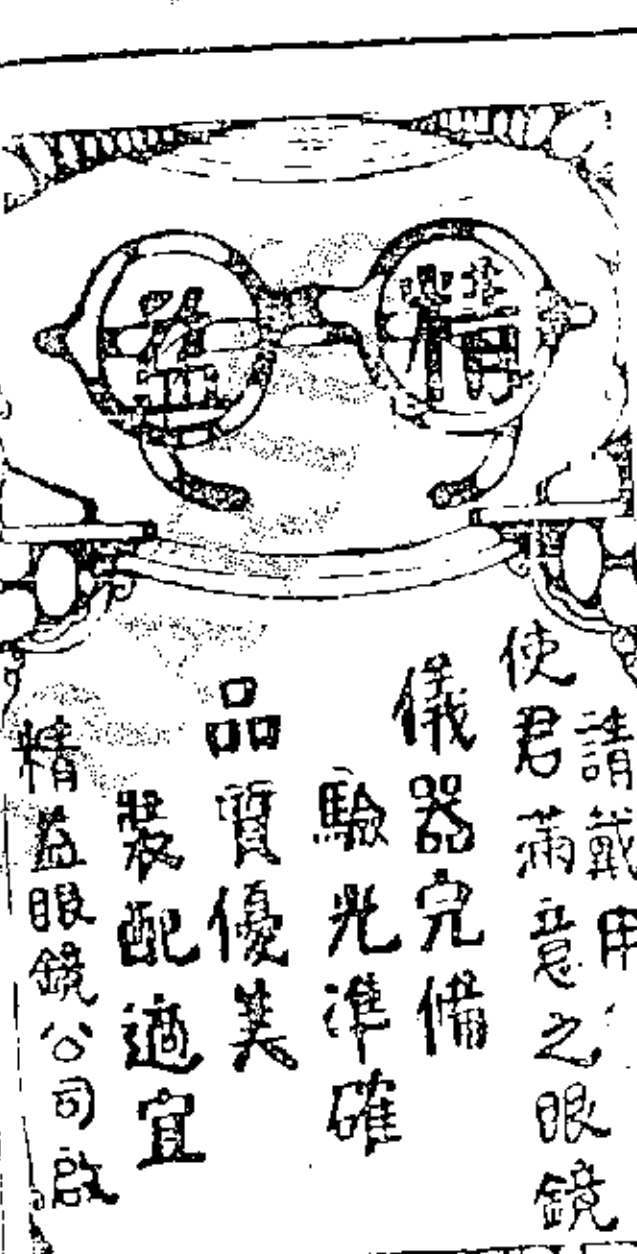 精益
請戴用
使君滿意之眼鏡
儀器完備
驗光準確
品質優美
裝配適宜
精益眼鏡公司啟